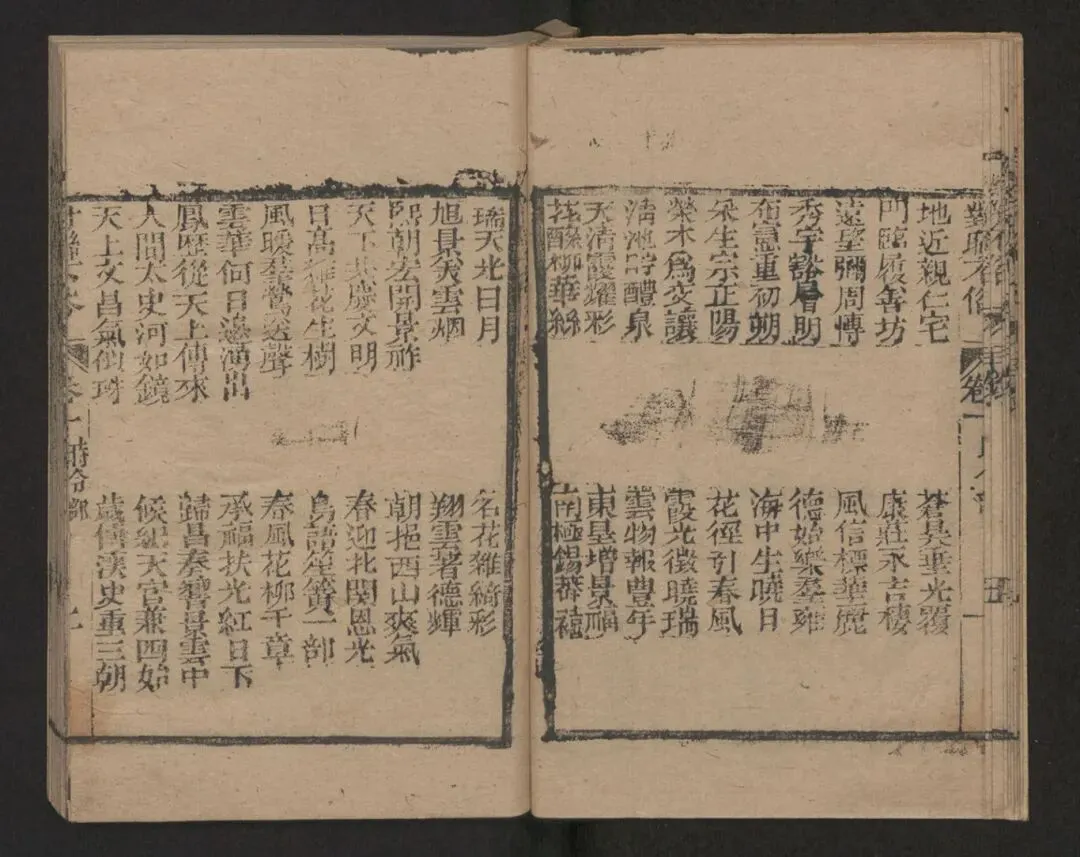 對聯
卷一
地近親仁宅
蒼昊垂光覆
門臨履善坊
康莊永吉棲
遠望彌周博
風信標華麗
秀宇豁眉明
德始樂羣雍
布憲重初朔
海中生曉日
采生宗正陽
花徑引春風
榮木爲交讓
霞光徵曉瑞
清池貯醴泉
雲物報豐年
天清霞耀彩
東皇增景福
花酥柳華絲
南極錫蕃禧
瑞天光日月
名花雜綺彩
旭景煥雲烟
翔雲著德輝
熙朝宏開景祚
朝挹西山爽氣
天下共慶文明
春迎北闕恩光
日高花生樹
鳥語笙簧一部
風暖羣鶯送聲
春風花柳千章
雲華何日邊湧出
承福扶光紅日下
鳳歷從天上傳來
歸昌奏響景雲中
人間太史河如鏡
候紀天官兼四始
天上文昌氣珠
歲傳漢史重三朝
卷一時令部